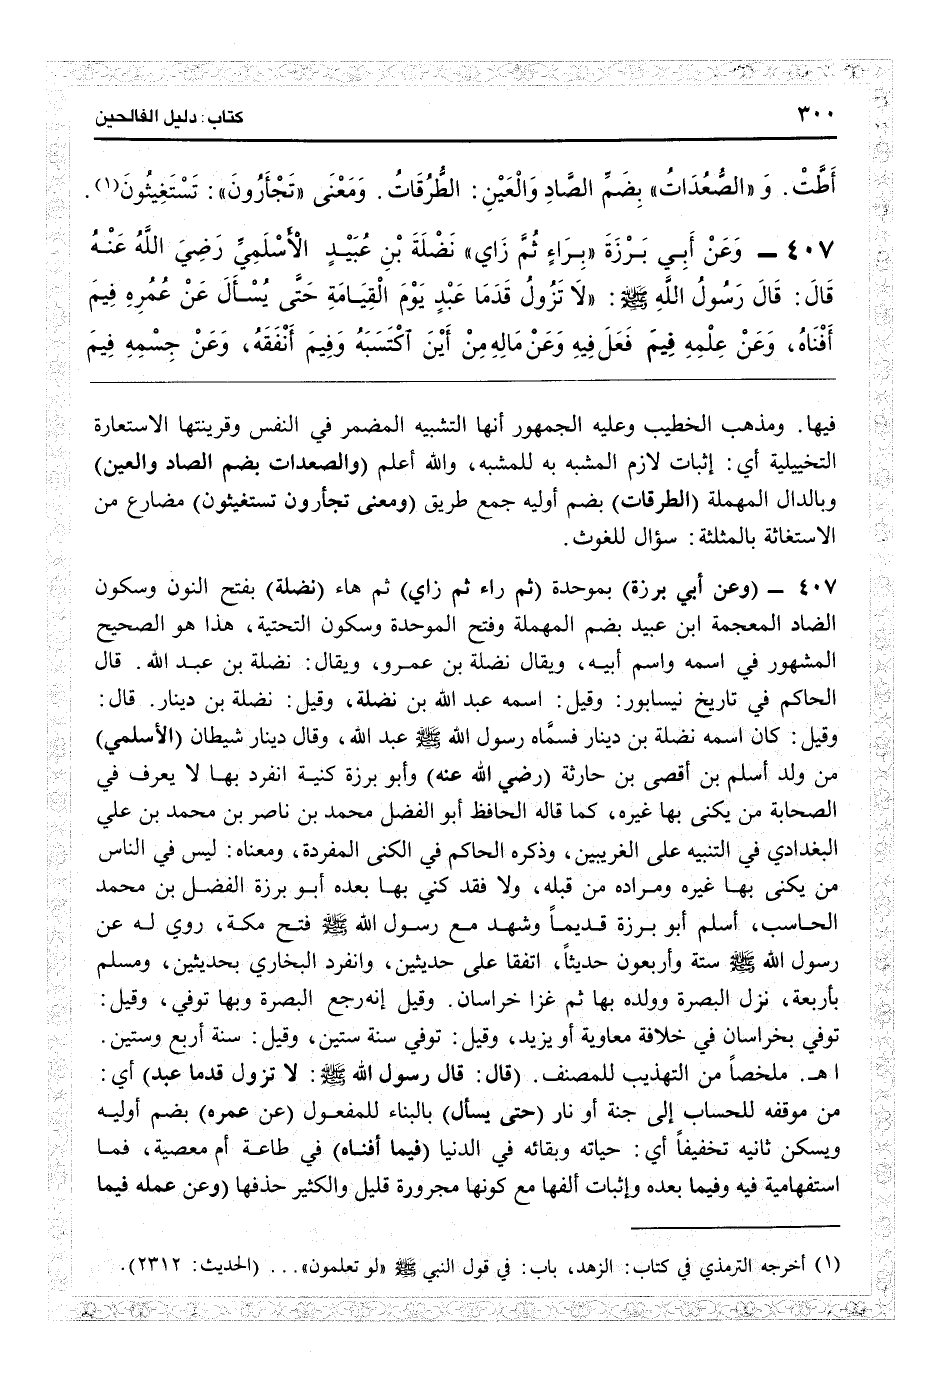 ٣٠٠
كتاب: دليل الفالحين
أَطَّتْ. وَ «الصُّعُدَاتُ» بِضَمِّ الصَّادِ وَالْعَيْنِ: الطُّرُقَاتُ. وَمَعْنَى «تَجْأَرُونَ»: تَسْتَغِيثُونَ(١).
٤٠٧ - وَعَنْ أَبِي بَرْزَةَ «بِرَاءٍ ثُمَّ زَاي» نَضْلَةَ بْنِ عُبَيْدٍ الْأَسْلَمِيِّ رَضِيَ اللَّهُ عَنْهُ
قَالَ: قَالَ رَسُولُ اللَّهِ ﷺ: «لَا تَزُولُ قَدَمَا عَبْدٍ يَوْمَ الْقِيَامَةِ حَتَّى يُسْأَلَ عَنْ عُمُرِهِ فِيمَ
أَفْنَاهُ، وَعَنْ عِلْمِهِ فِيمَ فَعَلَ فِيهِ وَعَنْ مَالِهِ مِنْ أَيْنَ ٱكْتَسَبَهُ وَفِيمَ أَنْفَقَهُ، وَعَنْ جِسْمِهِ فِيمَ
فيها. ومذهب الخطيب وعليه الجمهور أنها التشبيه المضمر في النفس وقرينتها الاستعارة
التخييلية أي: إثبات لازم المشبه به للمشبه، والله أعلم (والصعدات بضم الصاد والعين)
وبالدال المهملة (الطرقات) بضم أوليه جمع طريق (ومعنى تجأرون تستغيثون) مضارع من
الاستغاثة بالمثلثة: سؤال للغوث.
٤٠٧ - (وعن أبي برزة) بموحدة (ثم راء ثم زاي) ثم هاء (نضلة) بفتح النون وسكون
الضاد المعجمة ابن عبيد بضم المهملة وفتح الموحدة وسكون التحتية، هذا هو الصحيح
المشهور في اسمه واسم أبيه، ويقال نضلة بن عمرو، ويقال: نضلة بن عبد الله. قال
الحاكم في تاريخ نيسابور: وقيل: اسمه عبد الله بن نضلة، وقيل: نضلة بن دينار. قال:
وقيل: كان اسمه نضلة بن دينار فسمَّاه رسول الله ﷺ عبد الله، وقال دينار شيطان (الأسلمي)
من ولد أسلم بن أقصى بن حارثة (رضي الله عنه) وأبو برزة كنية انفرد بها لا يعرف في
الصحابة من يكنى بها غيره، كما قاله الحافظ أبو الفضل محمد بن ناصر بن محمد بن علي
البغدادي في التنبيه على الغريبين، وذكره الحاكم في الكنى المفردة، ومعناه: ليس في الناس
من يكنى بها غيره ومراده من قبله، ولا فقد كني بها بعده أبو برزة الفضل بن محمد
الحاسب، أسلم أبو برزة قديماً وشهد مع رسول الله ﷺ فتح مكة، روي له عن
رسول الله ﷺ ستة وأربعون حديثاً، اتفقا على حديثين، وانفرد البخاري بحديثين، ومسلم
بأربعة، نزل البصرة وولده بها ثم غزا خراسان. وقيل إنه رجع البصرة وبها توفي، وقيل:
توفي بخراسان في خلافة معاوية أو يزيد، وقيل: توفي سنة ستين، وقيل: سنة أربع وستين.
ا هـ. ملخصاً من التهذيب للمصنف. (قال: قال رسول الله ﷺ: لا تزول قدما عبد) أي:
من موقفه للحساب إلى جنة أو نار (حتى يسأل) بالبناء للمفعول (عن عمره) بضم أوليه
ويسكن ثانيه تخفيفاً أي: حياته وبقائه في الدنيا (فيما أفناه) في طاعة أم معصية، فما
استفهامية فيه وفيما بعده وإثبات ألفها مع كونها مجرورة قليل والكثير حذفها (وعن عمله فيما
(١) أخرجه الترمذي في كتاب: الزهد، باب: في قول النبي ﷺ «لو تعلمون»... (الحديث: ٢٣١٢).